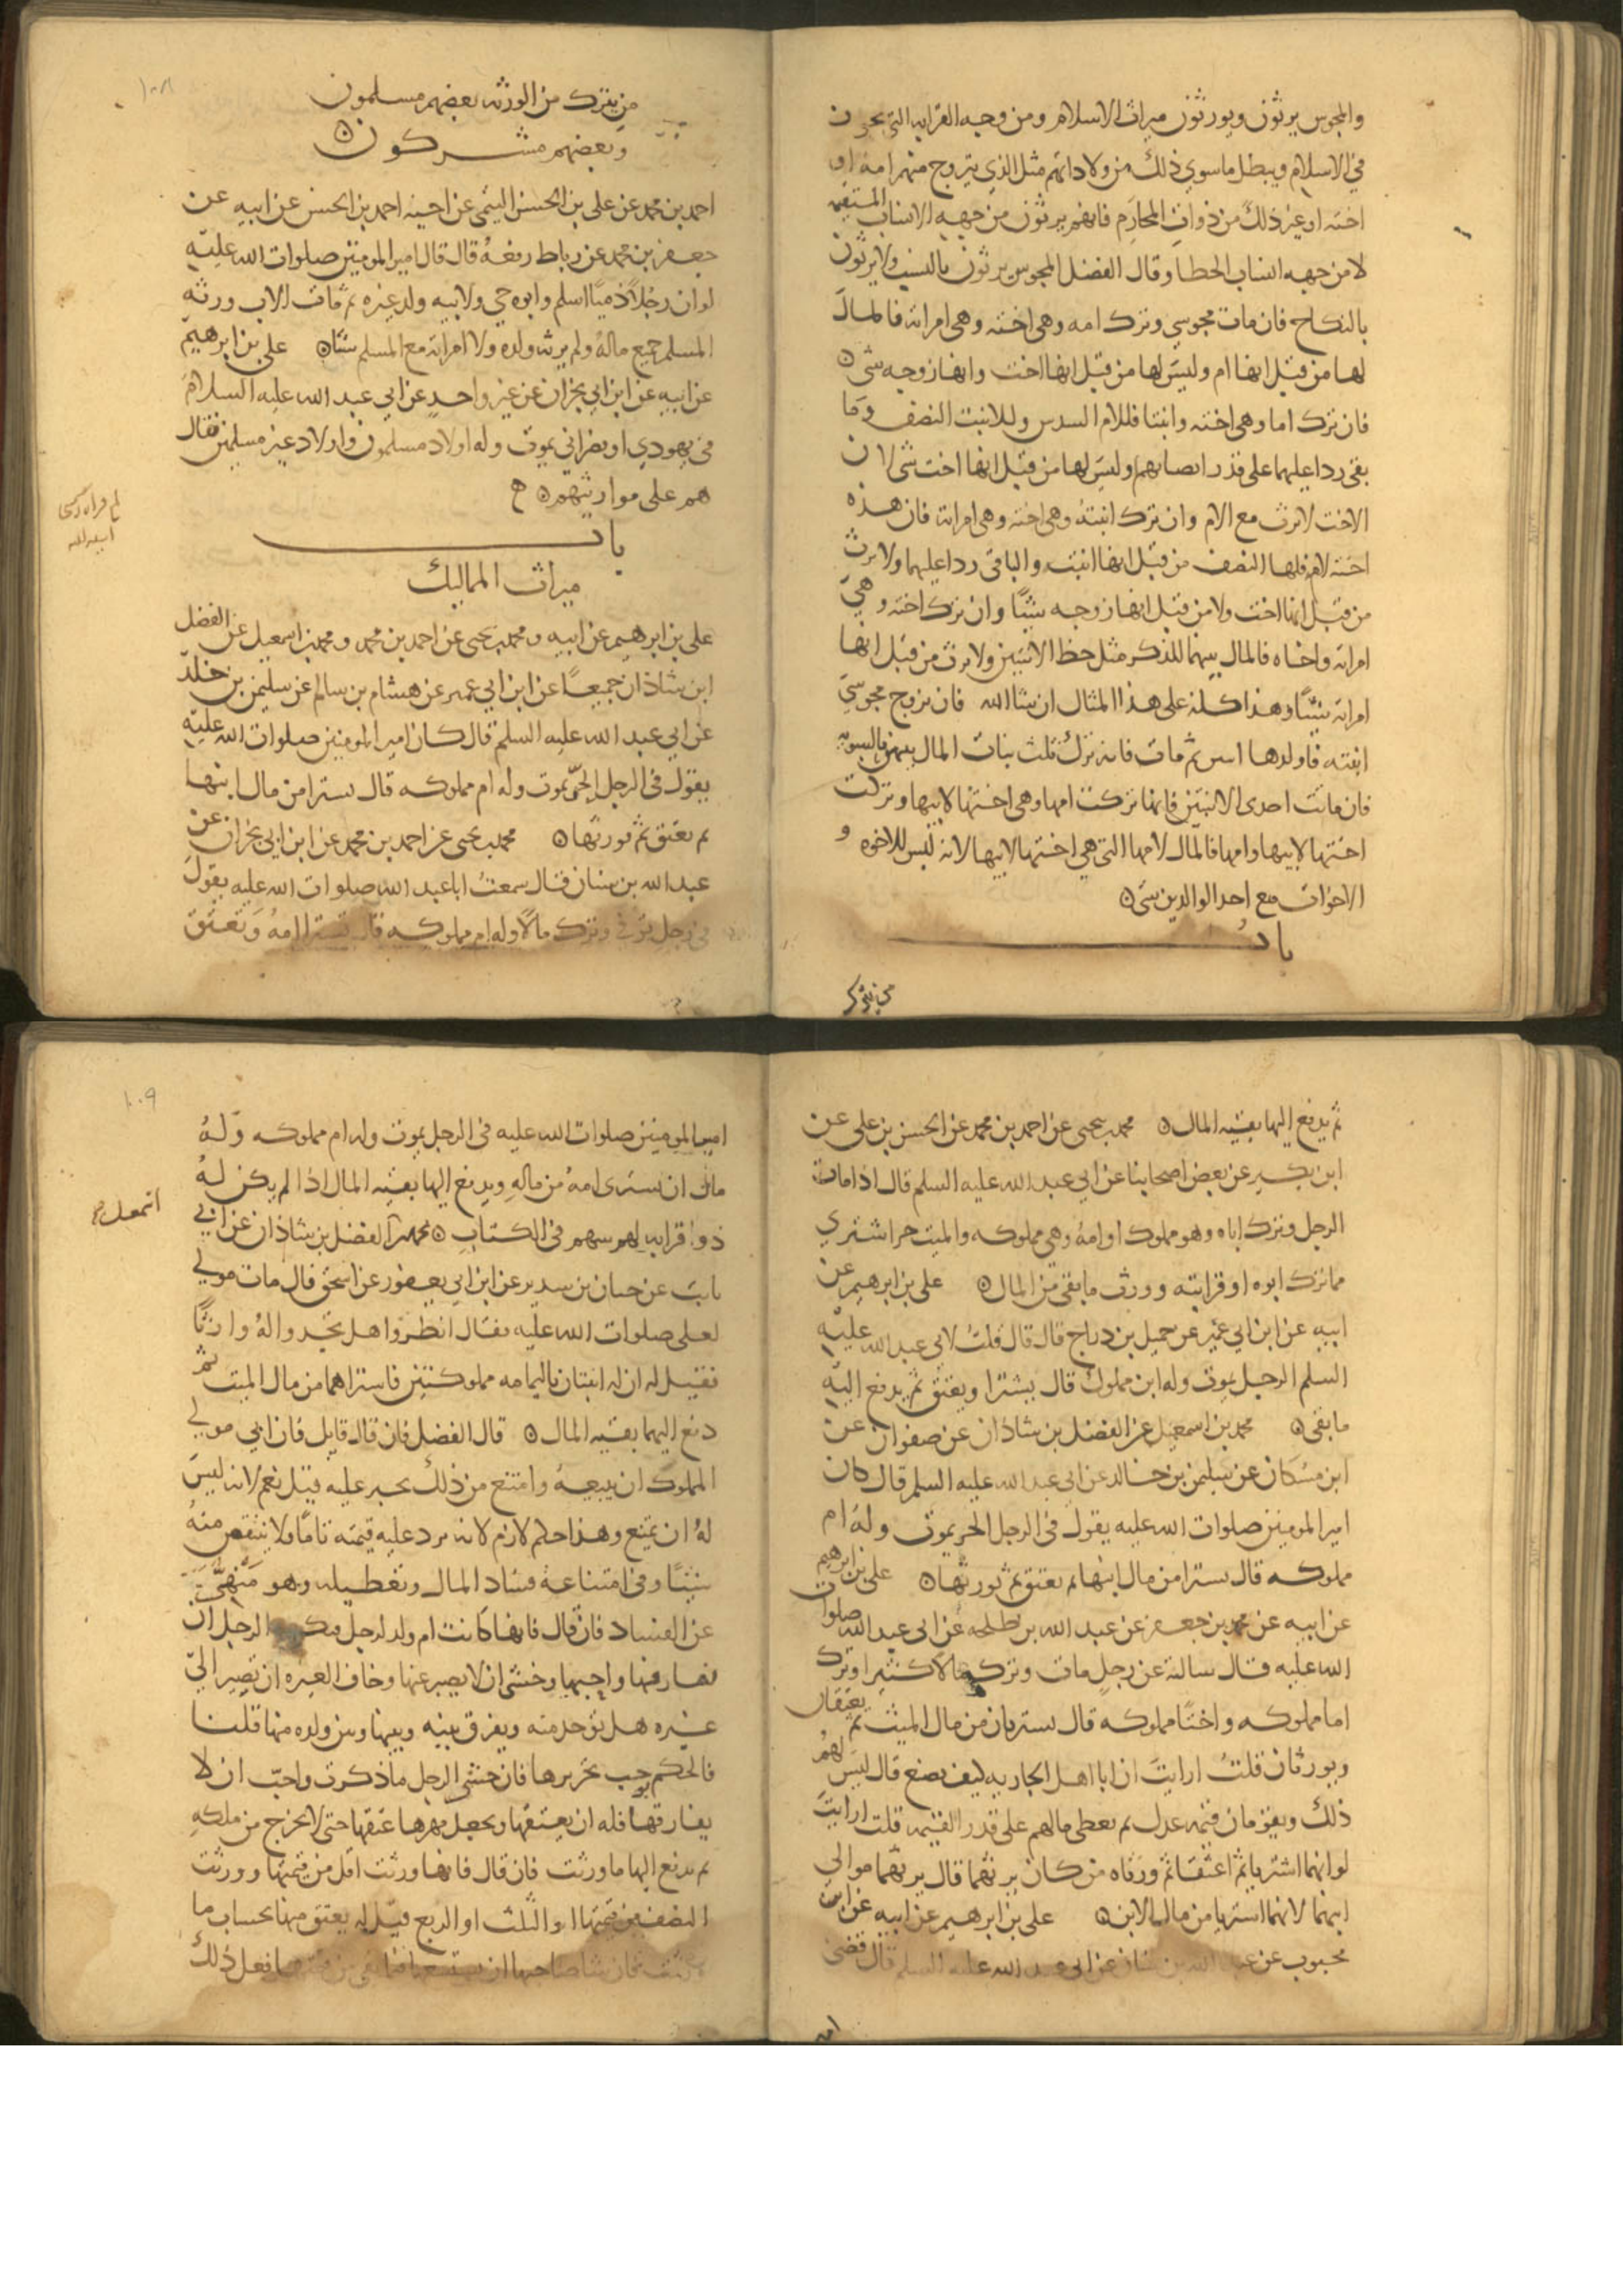 والمجوس يرثون ويورثون ميراث الاسلام ومن وجه القرابه التي يجوز
في الاسلام ويبطل ماسوي ذلك من ولاداتهم مثل الذي يتزوج منهم امه او
اخته او غير ذلك من ذوات المحارم فانهم يرثون من جهه الانساب المستقيمه
لا من جهه انساب الخطا وقال الفضل المجوس يرثون بالنسب ولا يرثون
بالنكاح فان مات مجوسي وترك امه وهي اخته وهي امراته فالمال
لها من قبل انها ام وليس لها من قبل انها اخت وانها زوجه شي
فان ترك اما وهي اخته وابنتا فللام السدس وللابنت النصف وما
بقي ردا عليهما علي قدر انصبائهم وليس لها من قبل انها اخت شي لان
الاخت لا ترث مع الام وان ترك ابنته وهي اخته وهي امراته فان هذه
اخته لامه فلها النصف من قبل انها ابنته والباقي رد عليها ولا ترث
من قبل انها اخت ولا من قبل انها زوجه شيئا وان ترك اخته وهي
امراته واخاه فالمال بينهما للذكر مثل حظ الانثيين ولا ترث من قبل انها
امراته شيئا وهذا كله على هذا المثال ان شا الله فان تزوج مجوسي
ابنته فاولدها ثم مات فانه ترك ثلث بنات المال بينهن بالسويه
فان ماتت احدي الابنتين فانها تركت امها وهي اختها لابيها وتركت
اختها لابيها وامها فالمال لامها التي هي اختها لابيها لانه ليس للاخوه و
الاخوات مع احد الوالدين شي
باب
من يترك من الورثه بعضهم مسلمون
وبعضهم مشركون
احمد بن محمد عن علي بن الحسن التيمي عن اخيه احمد بن الحسن عن ابيه عن
جعفر بن محمد عن رباط رفعه قال قال امير المومنين صلوات الله عليه
لو ان رجلا ذميا اسلم وابوه حي ولابيه ولد غيره ثم مات الاب ورثه
المسلم جميع ماله ولم يرثه ولده ولا امراته مع المسلم شيئا علي بن ابرهيم
عن ابيه عن ابن ابي نجران عن غير واحد عن ابي عبد الله عليه السلام
في يهودي او نصراني يموت وله اولاد مسلمون واولاد غير مسلمين فقال
هم على مواريثهم
باب
ميراث المماليك
علي بن ابرهيم عن ابيه ومحمد بن يحيى عن احمد بن محمد ومحمد بن اسمعيل عن الفضل
ابن شاذان جميعا عن ابن ابي عمير عن هشام بن سالم عن سليمن بن خلد
عن ابي عبد الله عليه السلم قال كان امير المومنين صلوات الله عليه
يقول في الرجل الحر يموت وله ام مملوكه قال تشترا من مال ابنها
ثم تعتق ثم تورثها محمد بن يحيى عن احمد بن محمد عن ابن ابي نجران عن
عبد الله بن سنان قال سمعت ابا عبد الله صلوات الله عليه يقول
في رجل توفي وترك مالا وله ام مملوكه قال تشترا امه وتعتق
١٠٨
ثم يدفع اليها بقيه المال محمد بن يحيى عن احمد بن محمد عن الحسن بن علي عن
ابن بكير عن بعض اصحابنا عن ابي عبد الله عليه السلم قال اذا مات
الرجل وترك اباه وهو مملوك او امه وهي مملوكه والميت حر اشتري
مما ترك ابوه او قرابته وورث ما بقي من المال علي بن ابرهيم عن
ابيه عن ابن ابي عمير عن جميل بن دراج قال قال قلت لابي عبد الله عليه
السلم الرجل يموت وله ابن مملوك قال يشترا ويعتق ثم يدفع اليه
ما بقي محمد بن اسمعيل عن الفضل بن شاذان عن صفوان عن
ابن مسكان عن سليمن بن خالد عن ابي عبد الله عليه السلم قال كان
امير المومنين صلوات الله عليه يقول في الرجل الحر يموت وله ام
مملوكه قال تشترا من مال ابنها ثم تعتق ثم تورثها علي بن ابرهيم
عن ابيه عن محمد بن جعفر عن عبد الله بن طلحه عن ابي عبد الله صلوات
الله عليه قال سالته عن رجل مات وترك مالا كثيرا وترك
اما مملوكه واختا مملوكه قال تشتريان من مال الميت ثم يعتقان
ويورثان قلت ارايت ان ابا اهل الجاريه كيف يصنع قال ليس لهم
ذلك ويقومان قيمه عدل ثم يعطي مالهم على قدر القيمه قلت ارايت
لو انهما اشتريا ثم اعتقا ثم ورثاه من كان يرثهما قال يرثهما موالي
ابنهما لانهما اشتريا من مال الابن علي بن ابرهيم عن ابيه عن ابن
محبوب عن عبد الله بن سنان عن ابي عبد الله عليه السلم قال قضي
امير المومنين صلوات الله عليه في الرجل يموت وله ام مملوكه وله
مال ان تشتري امه من ماله ويدفع اليها بقيه المال اذا لم يكن له
ذوا قرابه لهم سهم في الكتاب محمد الفضل بن شاذان عن ابي
ثابت عن حنان بن سدير عن ابن ابي يعفور عن اسحق قال مات مولي
لعلي صلوات الله عليه فقال انظروا هل تجدوا له وارثا
فقيل له ان له ابنتان باليمامه مملوكتين فاشتراهما من مال الميت ثم
دفع اليهما بقيه المال قال الفضل فان قال قايل فان ابي مولي
المملوك ان يبيعه وامتنع من ذلك يجبر عليه قيل نعم لانه ليس
له ان يمتنع وهذا حكم لازم لانه يرد عليه قيمته تاما ولا ينتقص منه
شيئا وفي امتناعه فساد المال وتعطيله وهو منهي
عن الفساد فان قال فانها كانت ام ولد لرجل الرجل ان
يفارقها واحبها وخشي ان لا يصبر عنها وخاف الغيره ان تصير الي
غيره هل تؤخذ منه ويفرق بينه وبينها وبين ولده منها قلنا
فالحكم يوجب تحريرها فان خشي الرجل ما ذكرت واحب ان لا
يفارقها فله ان يعتقها ويجعل مهرها عتقها حتى لا تخرج من ملكه
ثم يدفع اليها ما ورثت فان قال فانها ورثت اقل من قيمتها وورثت
النصف من قيمتها او الثلث او الربع قيل له يعتق منها بحساب ما
ورثت فان شا صاحبها ان يستسعيها فيما بقي من قيمتها فعل ذلك
١٠٩